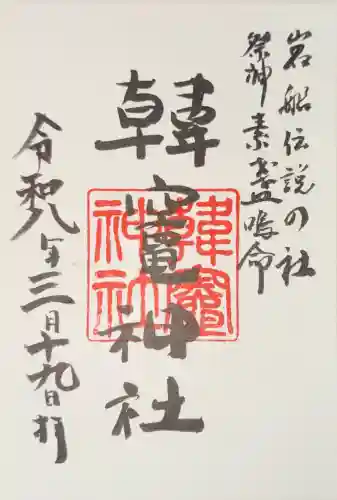 岩船伝説の社
祭神素盞嗚命
韓竈神社
韓竈
神社
令和八年三月十九日拝